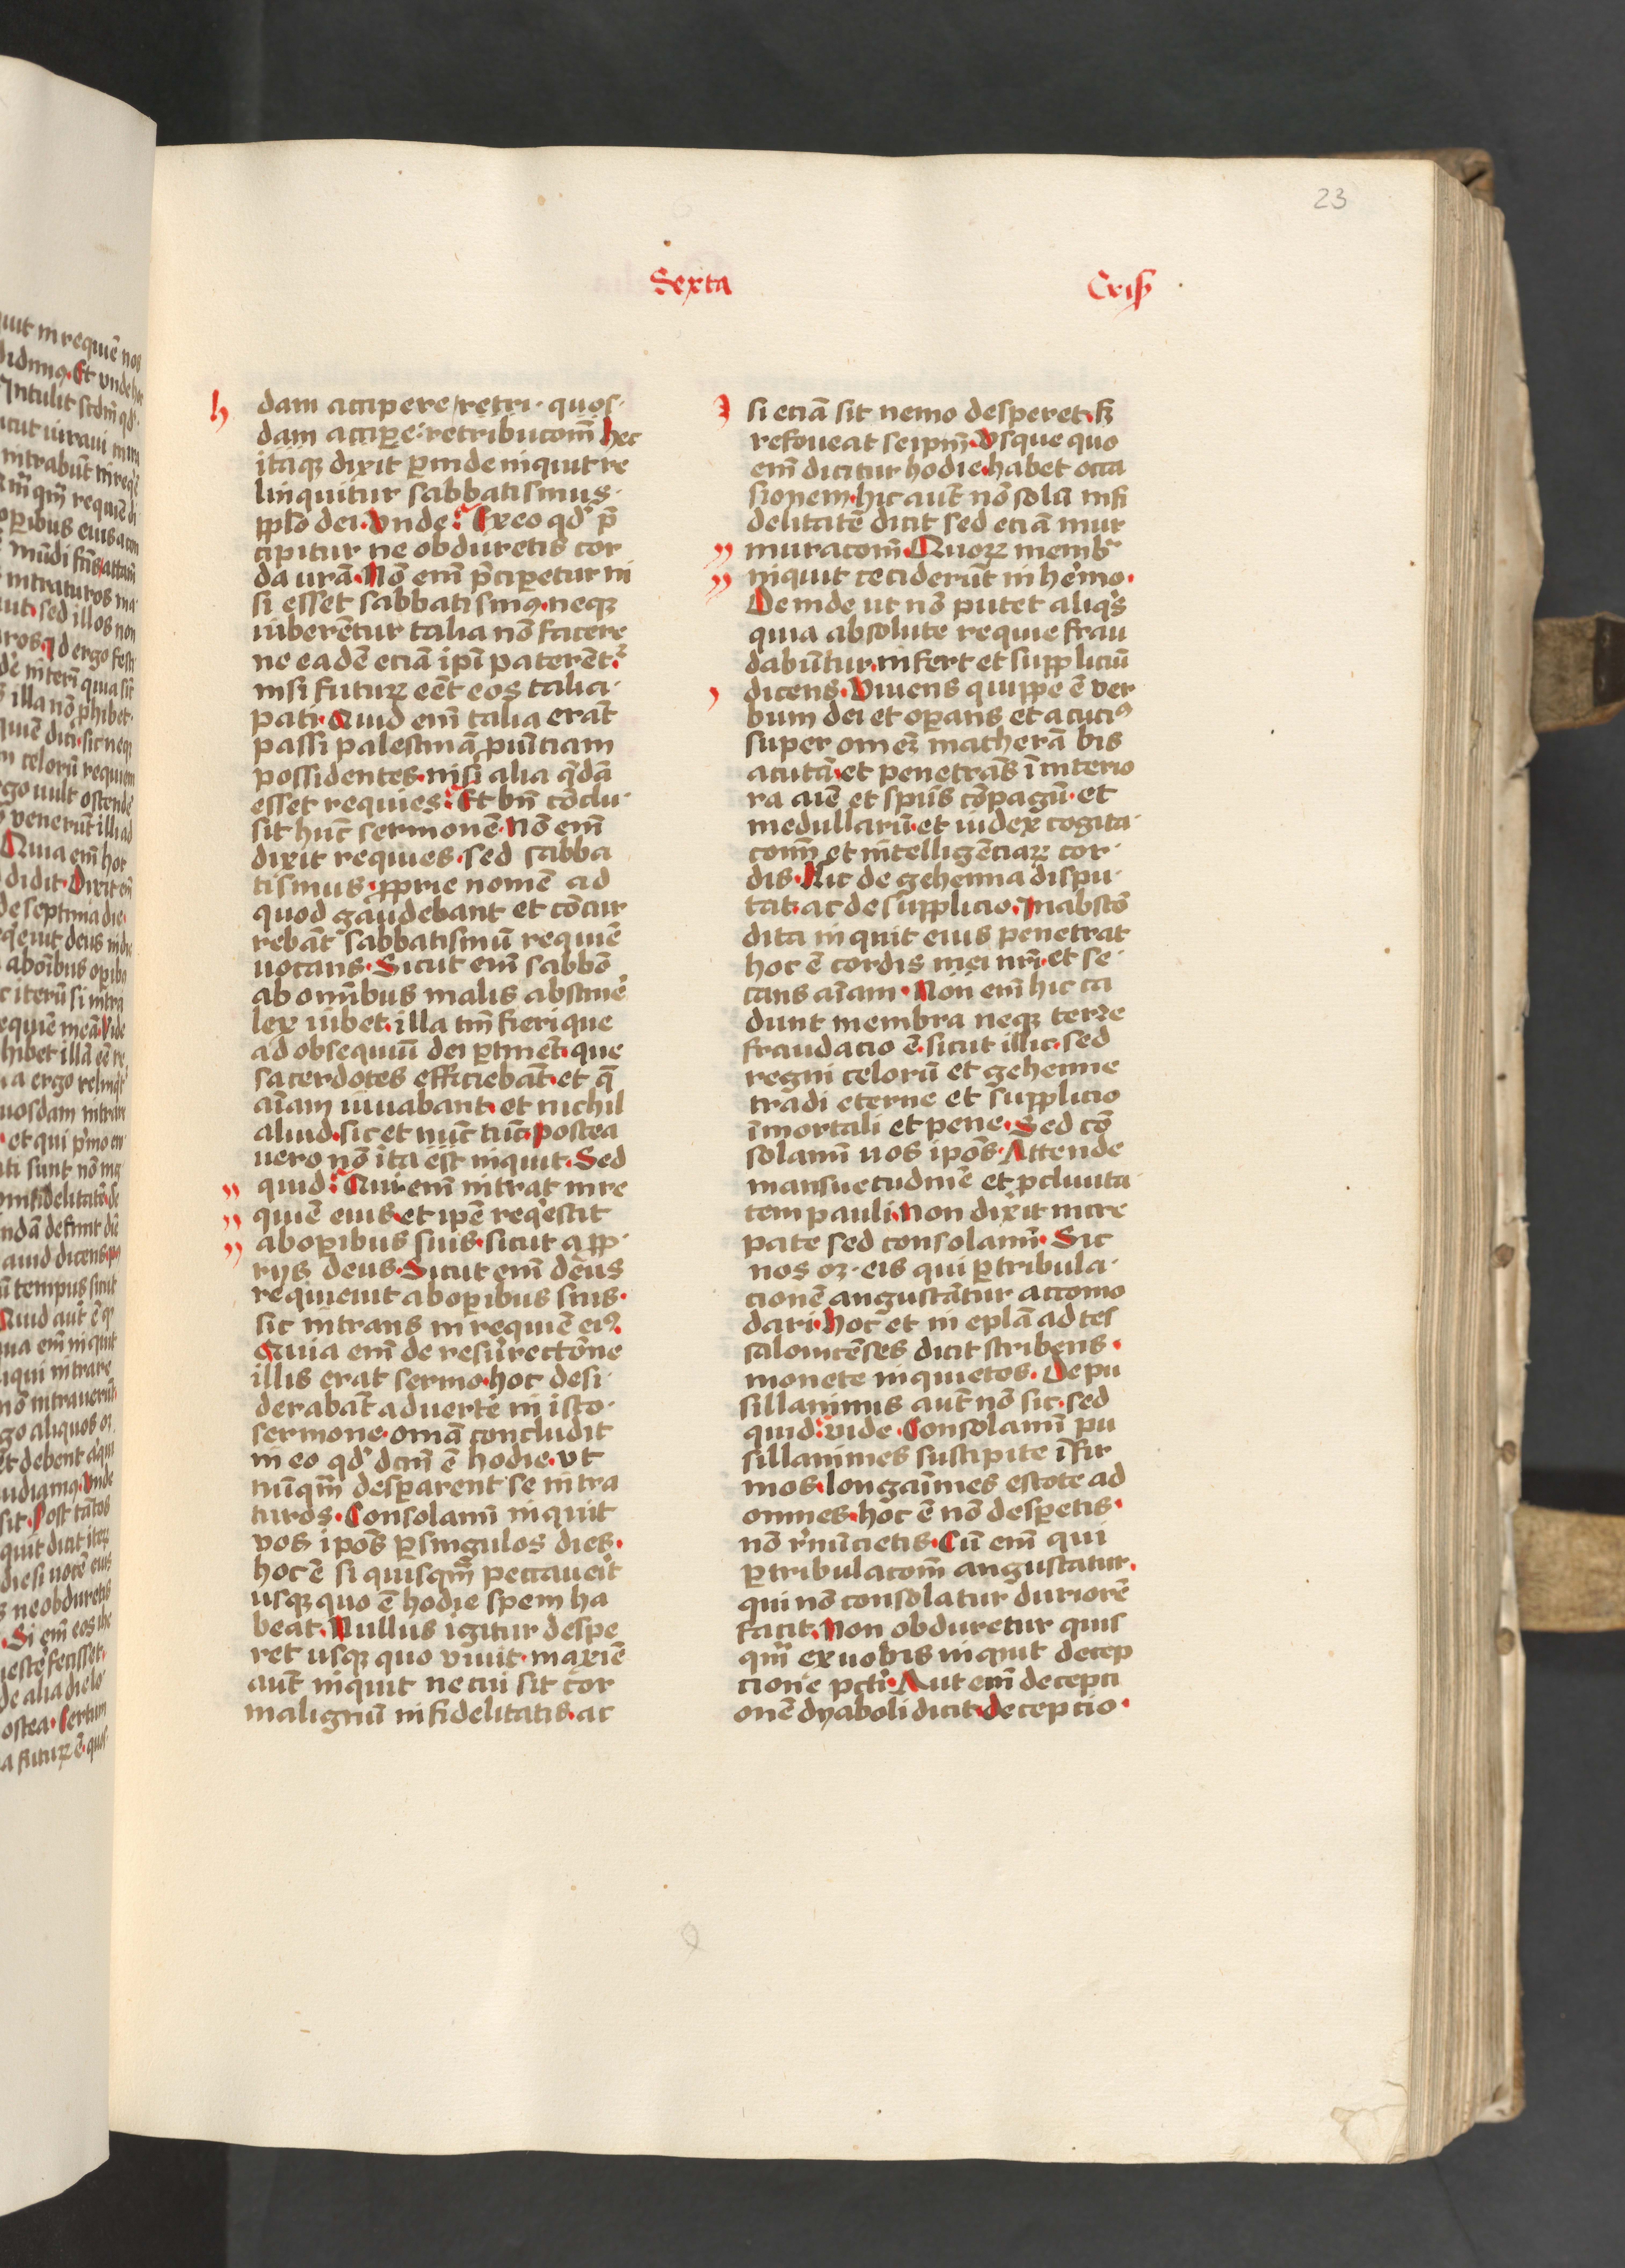 23
Sexta
Cris
h
dam accipere / retri · quos·
dam accip̱e : retribucōm̄ hec
itaqꝫ dixit ꝑinde inquit re
linquitur sabbatismus ·
ꝑplo dei · Unde : Ex eo qd̕ p̄
cipitur ne obduretis cor
da ur̄a · Nō em̄ p̄ciperetur ni
si esset sabbatismꝰ · neqꝫ
iuberēntur talia nō facere
ne eadē eciā ip̄i paterēt᷑ ·
nisi futurꝝ eēt eos talia ·
pati · Quid em̄ talia erāt
passi palestinā ꝓuīciam
possidentes · nisi alia q̄dā
esset requies : Et bn̄ cōclu·
sit hūc sermonē · Nō em̄
dixit requies · sed sabba
tismus · ꝓprie nomē ad
quod gaudebant et cōcur
rebāt sabbatismū requiē
uocans · Sicut em̄ sabbō
ab omībus malis abstinē
lex iubet · illa tm̄ fieri que
ad obsequiū dei ꝑtinēt · que
sacerdotes efficiebāt · et q̄
aīam iuuabant · et nichil
aliud · sic et nūc tūc · postea
uero nō ita est inquit · Sed
quid : Qui em̄ intrat in re
quiē eius et ip̄e reqͥescit
ab oꝑibus suis · sicut a ꝓp·
rijs deus · Sicut em̄ deus
requieuit ab oꝑibus suis ·
sic intrans in requiē eiꝰ ·
Quia em̄ de resurrectōne
illis erat sermo · hoc desi·
derabāt aduertē in isto ·
sermone · om̄a concludit
in eo qd̕ dcm̄ ē hodie · ut
nūqm̄ desꝑarent se intra
turos · Consolam̄ inquit
vos ipōs ꝑ singulos dies ·
hoc ē si quisqm̄ peccauerit
usqꝫ quo ē hodie spem ha
beat · Nullus igitur despe
ret usqꝫ quo viuit · maxiē
aūt inquit ne cui sit cor
malignū infidelitatis · ac
si eciā sit nemo desperet · sꝫ
refoueat seipm̄ · Usque quo
em̄ dicitur hodie · habet occa
sionem · hic aūt nō solū infi
delitatē dicit sed eciā mur
muracōm̄ · Quorꝝ membr̄
inquit ceciderūt in hēmo ·
Deinde ut nō putet aliqͥs
quia absolute requie frau
dabūntur · infert et suppliciū
dicens · Viuens quippe ē ver
bum dei et oꝑans et acuciꝰ
super om̄eꝫ macherā bis
acutā et penetrās ī interio
ra aīe et spūs cōpagū · et
medullarū · et iudex cogita·
conū et intelligēciarꝝ cor·
dis · Hic de gehenna dispu·
tat · ac de supplicio · In abscō
dita inquit eius penetrat
hoc ē cordis mei nr̄i · et se·
cans aīam · Non em̄ hic ca
dunt membra neqꝫ terre
fraudacio ē · sicut illic · sed
regni celorū et gehenne
tradi eterne et supplicio
īmortali et pene · Sed cō
solam̄ uos ipōs · Attende
mansuetudinē et ꝓcliuita·
tem pauli · Non dixit incre
pate sed consolam̄ · Sic
nos oꝫ · eis qui ꝑ tribula·
cionē angustātur accomo
dari · Hoc et in eplā ad tes
salonicēses dicit scribens ·
monete inquietos · De pu
sillanimis aūt nō sic · sed
quid : vide · Consolam̄ pu
sillanimes suscipite īfir
mos · longaīmes estote ad
omnes · hoc ē nō desꝑetis ·
nō r̄nūcietis · Cū em̄ qui
ꝑ tribulacōm̄ angustatur ·
qui nō consolatur duriorē
facit · Non obduretur quis
qm̄ ex uobis inquit decep
cione pcti · Aut em̄ decepci
onē dyaboli dicit · decepcio ·